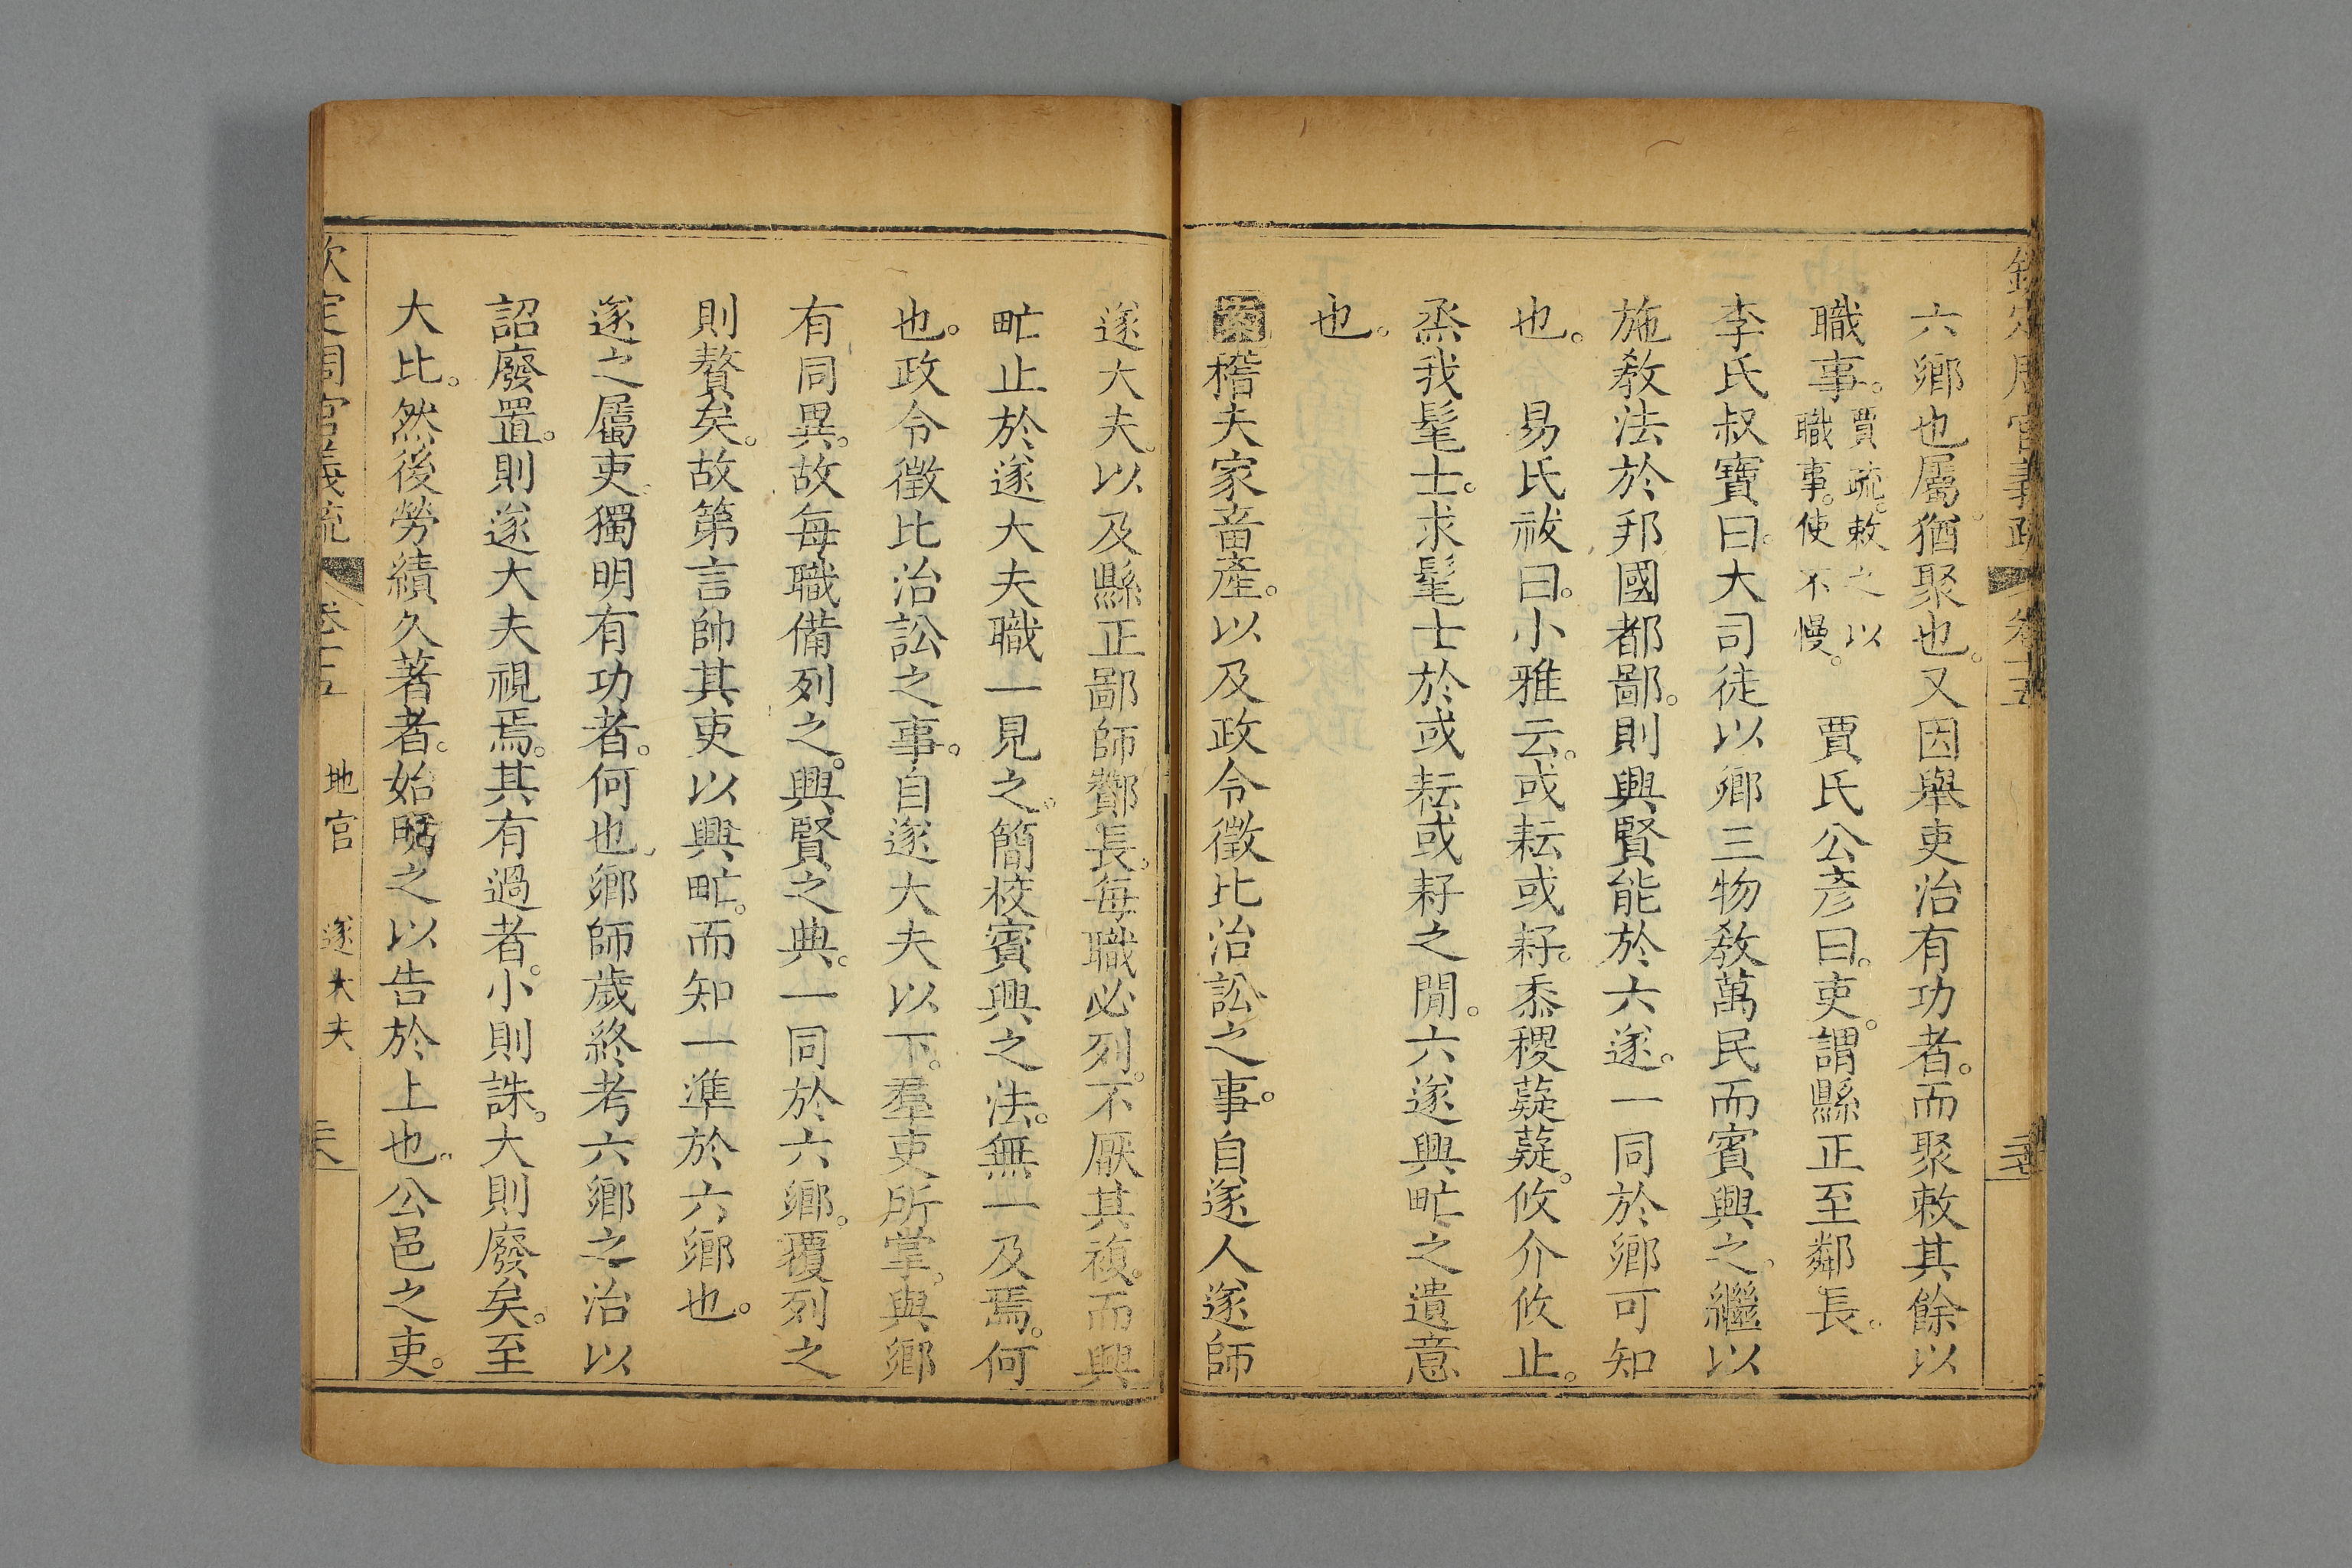 欽定周官義疏 卷十五
六鄉也屬猶聚也又因舉吏治有功者。而聚敕其餘以
職事。賈疏。敕之以職事。使不慢。 賈氏公彥曰。吏。謂縣正至鄰長。
李氏叔寶曰。大司徒以鄉三物敎萬民而賓興之。繼以
施敎法於邦國都鄙。則興賢能於六遂。一同於鄉可知
也。 易氏祓曰。小雅云。或耘或耔。黍稷薿薿。攸介攸止。
烝我髦士。求髦士於或耘或耔之閒。六遂興甿之遺意
也。
稽夫家畜產。以及政令徵比治訟之事。自遂人遂師
遂大夫。以及縣正鄙師酇長。每職必列。不厭其複。而興
甿止於遂大夫職一見之。簡校賓興之法。無一及焉。何
也。政令徵比治訟之事。自遂大夫以下。羣吏所掌。與鄉
有同異。故每職備列之。興賢之典。一同於六鄉。覆列之
則贅矣。故第言帥其吏以興甿。而知一準於六鄉也。
遂之屬吏。獨明有功者。何也。鄉師歲終考六鄉之治以
詔廢置。則遂大夫視焉。其有過者。小則誅。大則廢矣。至
大比。然後勞績久著者。始明之以告於上也。公邑之吏。
欽定周官義疏 卷十五 地官 遂大夫